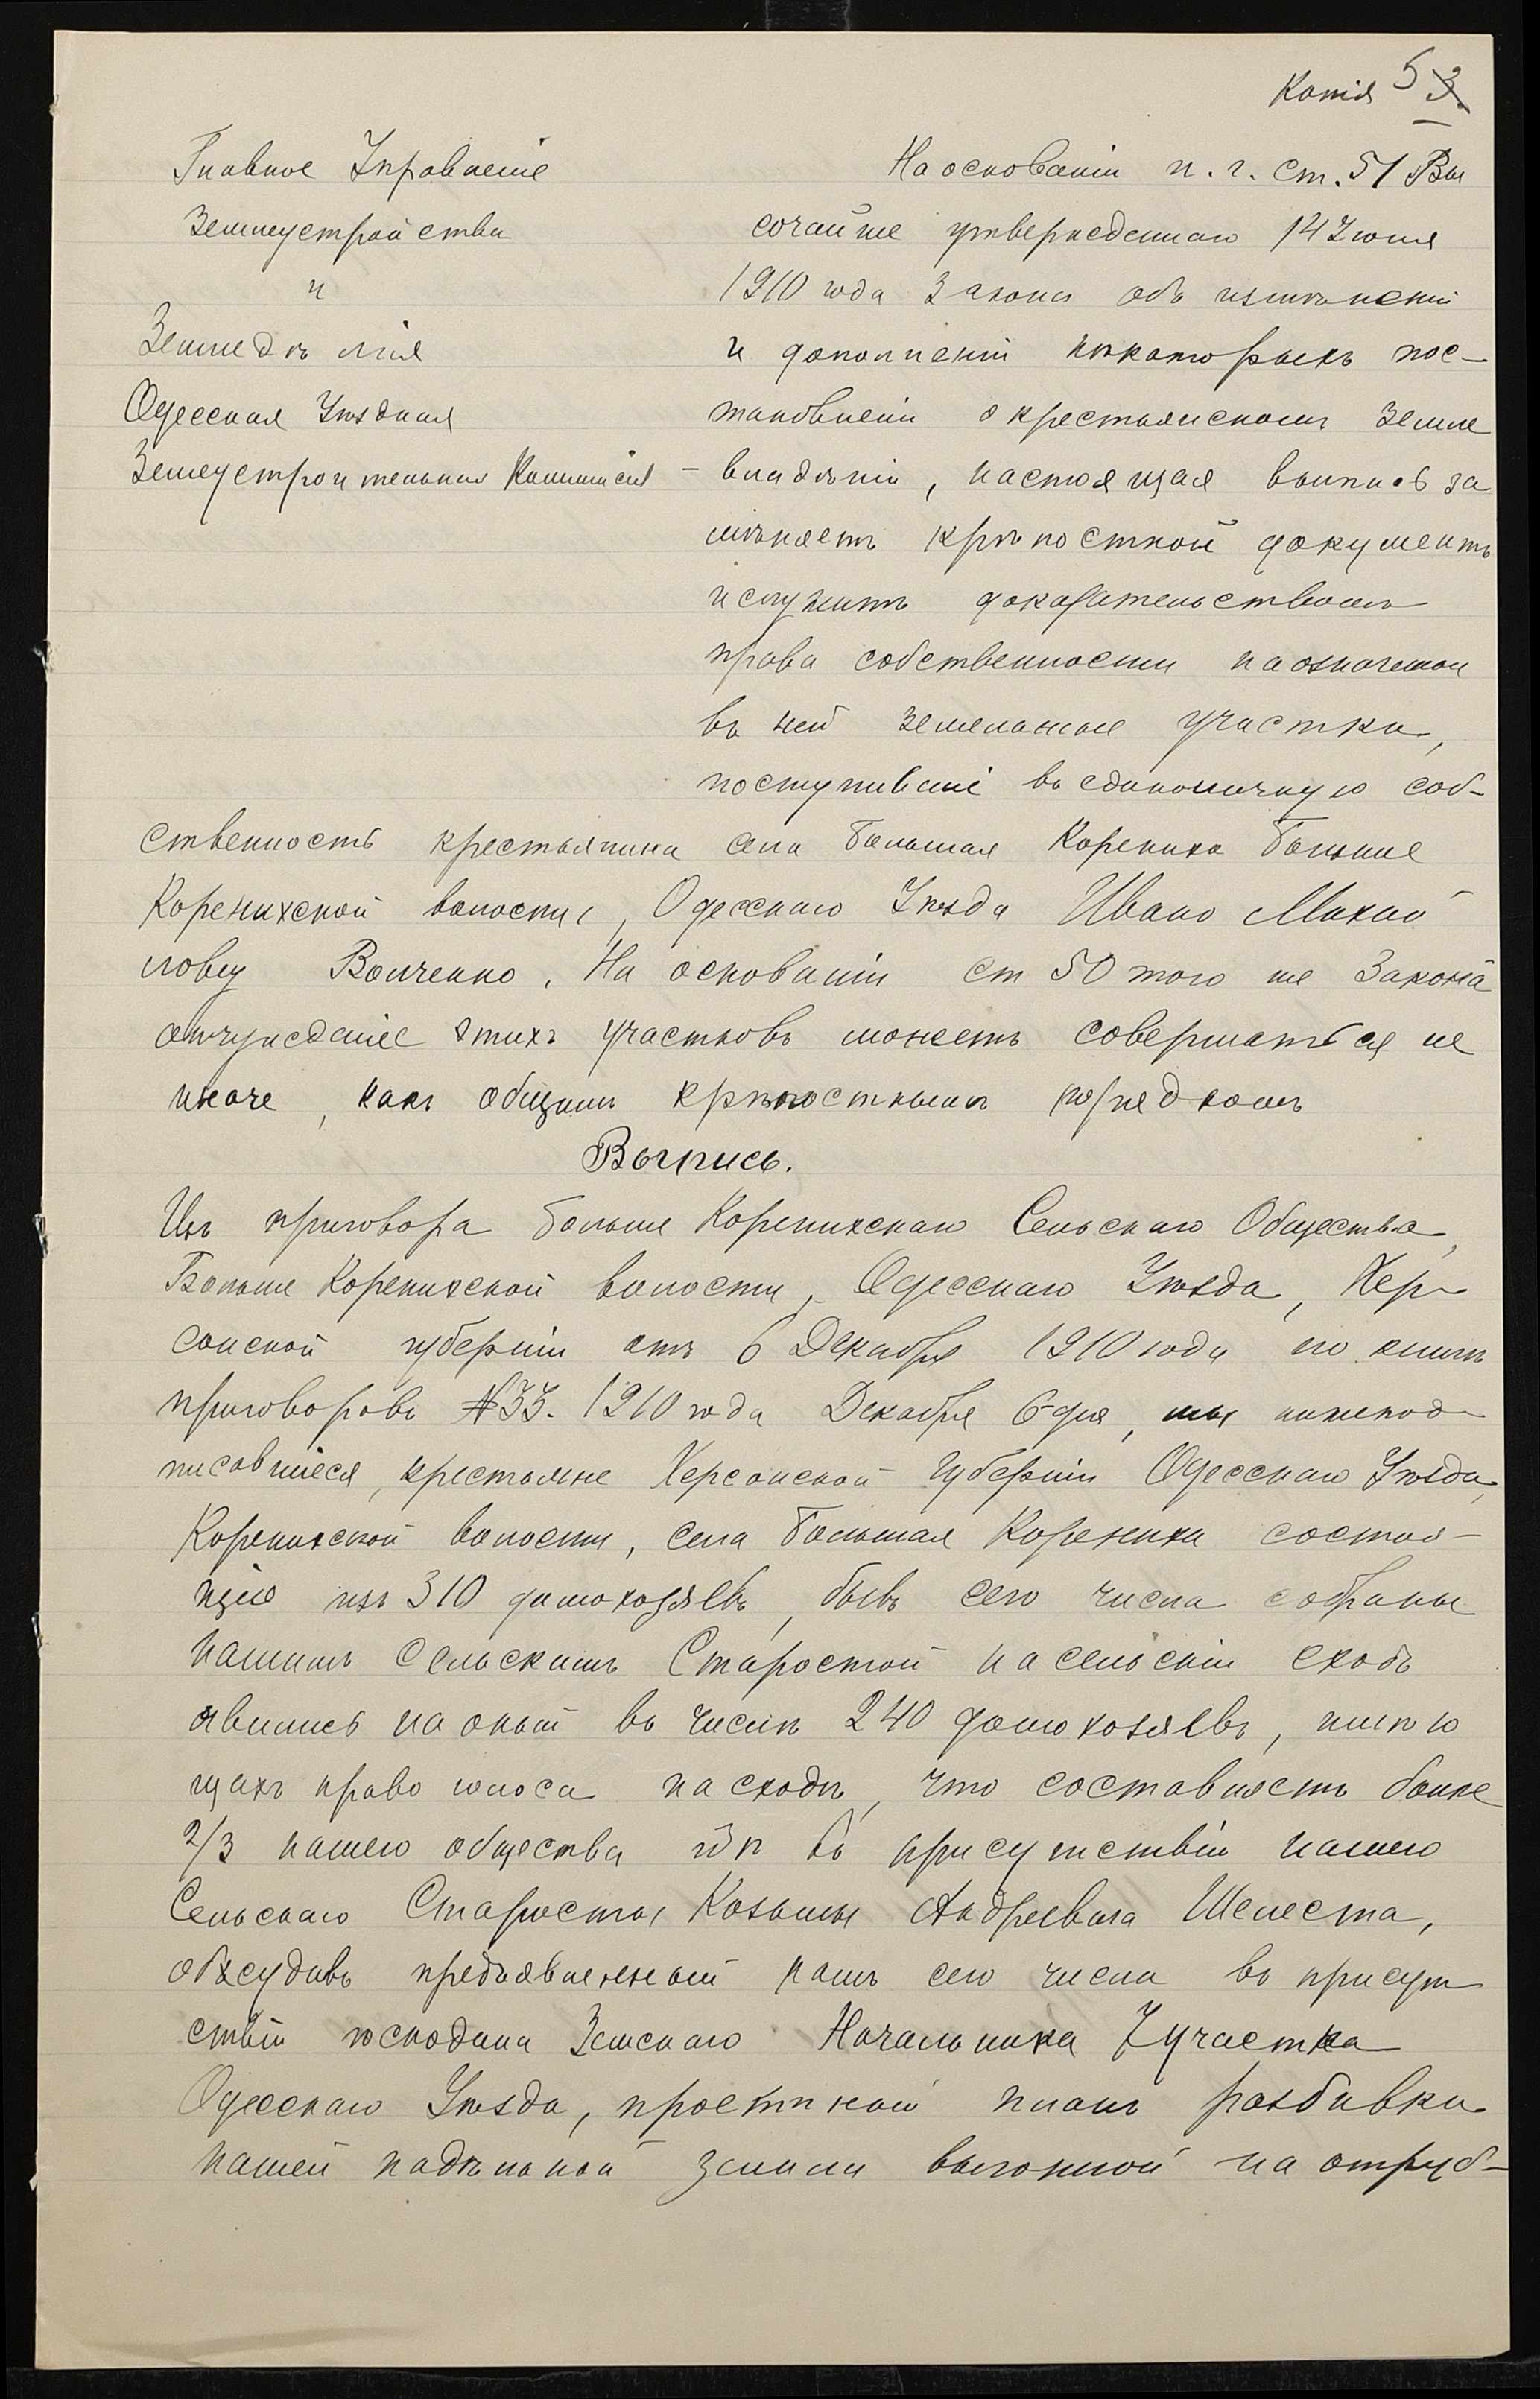 Копія 5 3
Главное Управленіе
Землеустройства
и
Земледѣлія
Одесская Уѣздная
Землеустроительная Коммисія
На основаніи п. г. ст. 51 Вы
сочайше утвержденнаго 14 Іюня
1910 года Закона объ измѣненіи
и дополненіи нѣкоторыхъ пос-
тановленій о крестьянскомъ земле
- владѣніи, настоящая выпись за
мѣняетъ крѣпостной документъ
и служитъ доказательствомъ
права собственности на означенные
въ ней земельные участки,
поступившіе въ единоличную соб-
ственность крестьянина села Большая Корениха Больше
Коренихской волости, Одесскаго Уѣзда Ивана Михай
лову Волченко. На основаніи ст 50 того же Закона
отчужденіе этихъ участковъ можетъ совершаться не
иначе, какъ общимъ крѣпостнымъ порядкомъ
Выпись.
Изъ приговора Больше Коренихскаго Сельскаго Общества,
Больше Коренихской волости, Одесскаго Уѣзда, Хер-
сонской губерніи отъ 6 Декабря 1910 года по книгѣ
приговоровъ № 33. 1910 года Декабря 6 дня, мы нижепод-
писавшіеся, крестьяне Херсонской Губерніи Одесскаго Уѣзда,
Коренихской волости, села Большая Корениха состоя-
щіе изъ 310 домохозяевъ, бывъ сего числа собраны
нашимъ Сельскимъ Старостой на сельскій сходъ
явились на оный въ числѣ 240 домохозяевъ, имѣю
щихъ право голоса на сходѣ, что составляетъ болѣе
2/3 нашего общества гдѣ въ присутствіи нашего
Сельскаго Старосты Козьмы Андреевича Шелеста,
обсудивъ предъявленный намъ сего числа въ присут
ствіи господина Земскаго Начальника 7 участка
Одесскаго Уѣзда, проектный планъ разбивки
нашей надѣльной земли выгонной на отруб-